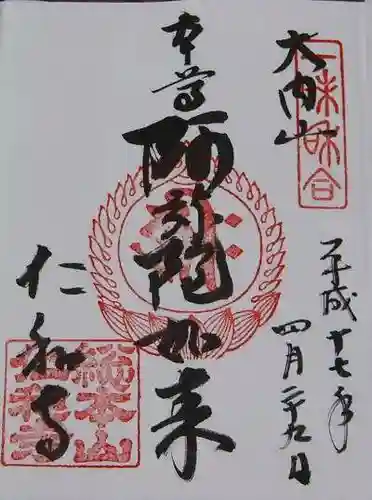 大内山
一味和合
平成十七年
四月二十九日
本尊
阿弥陀如来
仁和寺
総本山
仁和寺